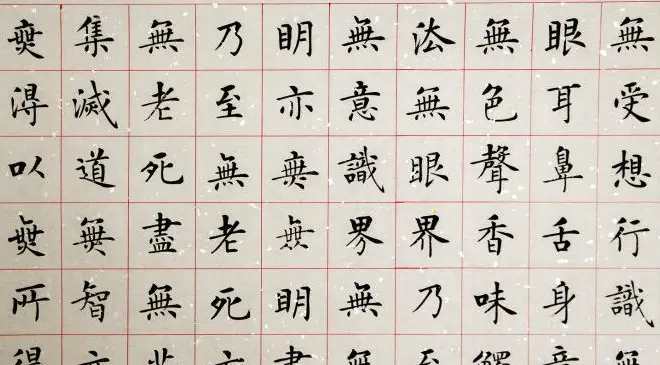 無受想行識無
眼耳鼻舌身意
無色聲香味觸
法無眼界乃至
無意識界無無
明亦無無明盡
乃至無老死亦
無老死盡無
集滅道無智亦
無得以無所得